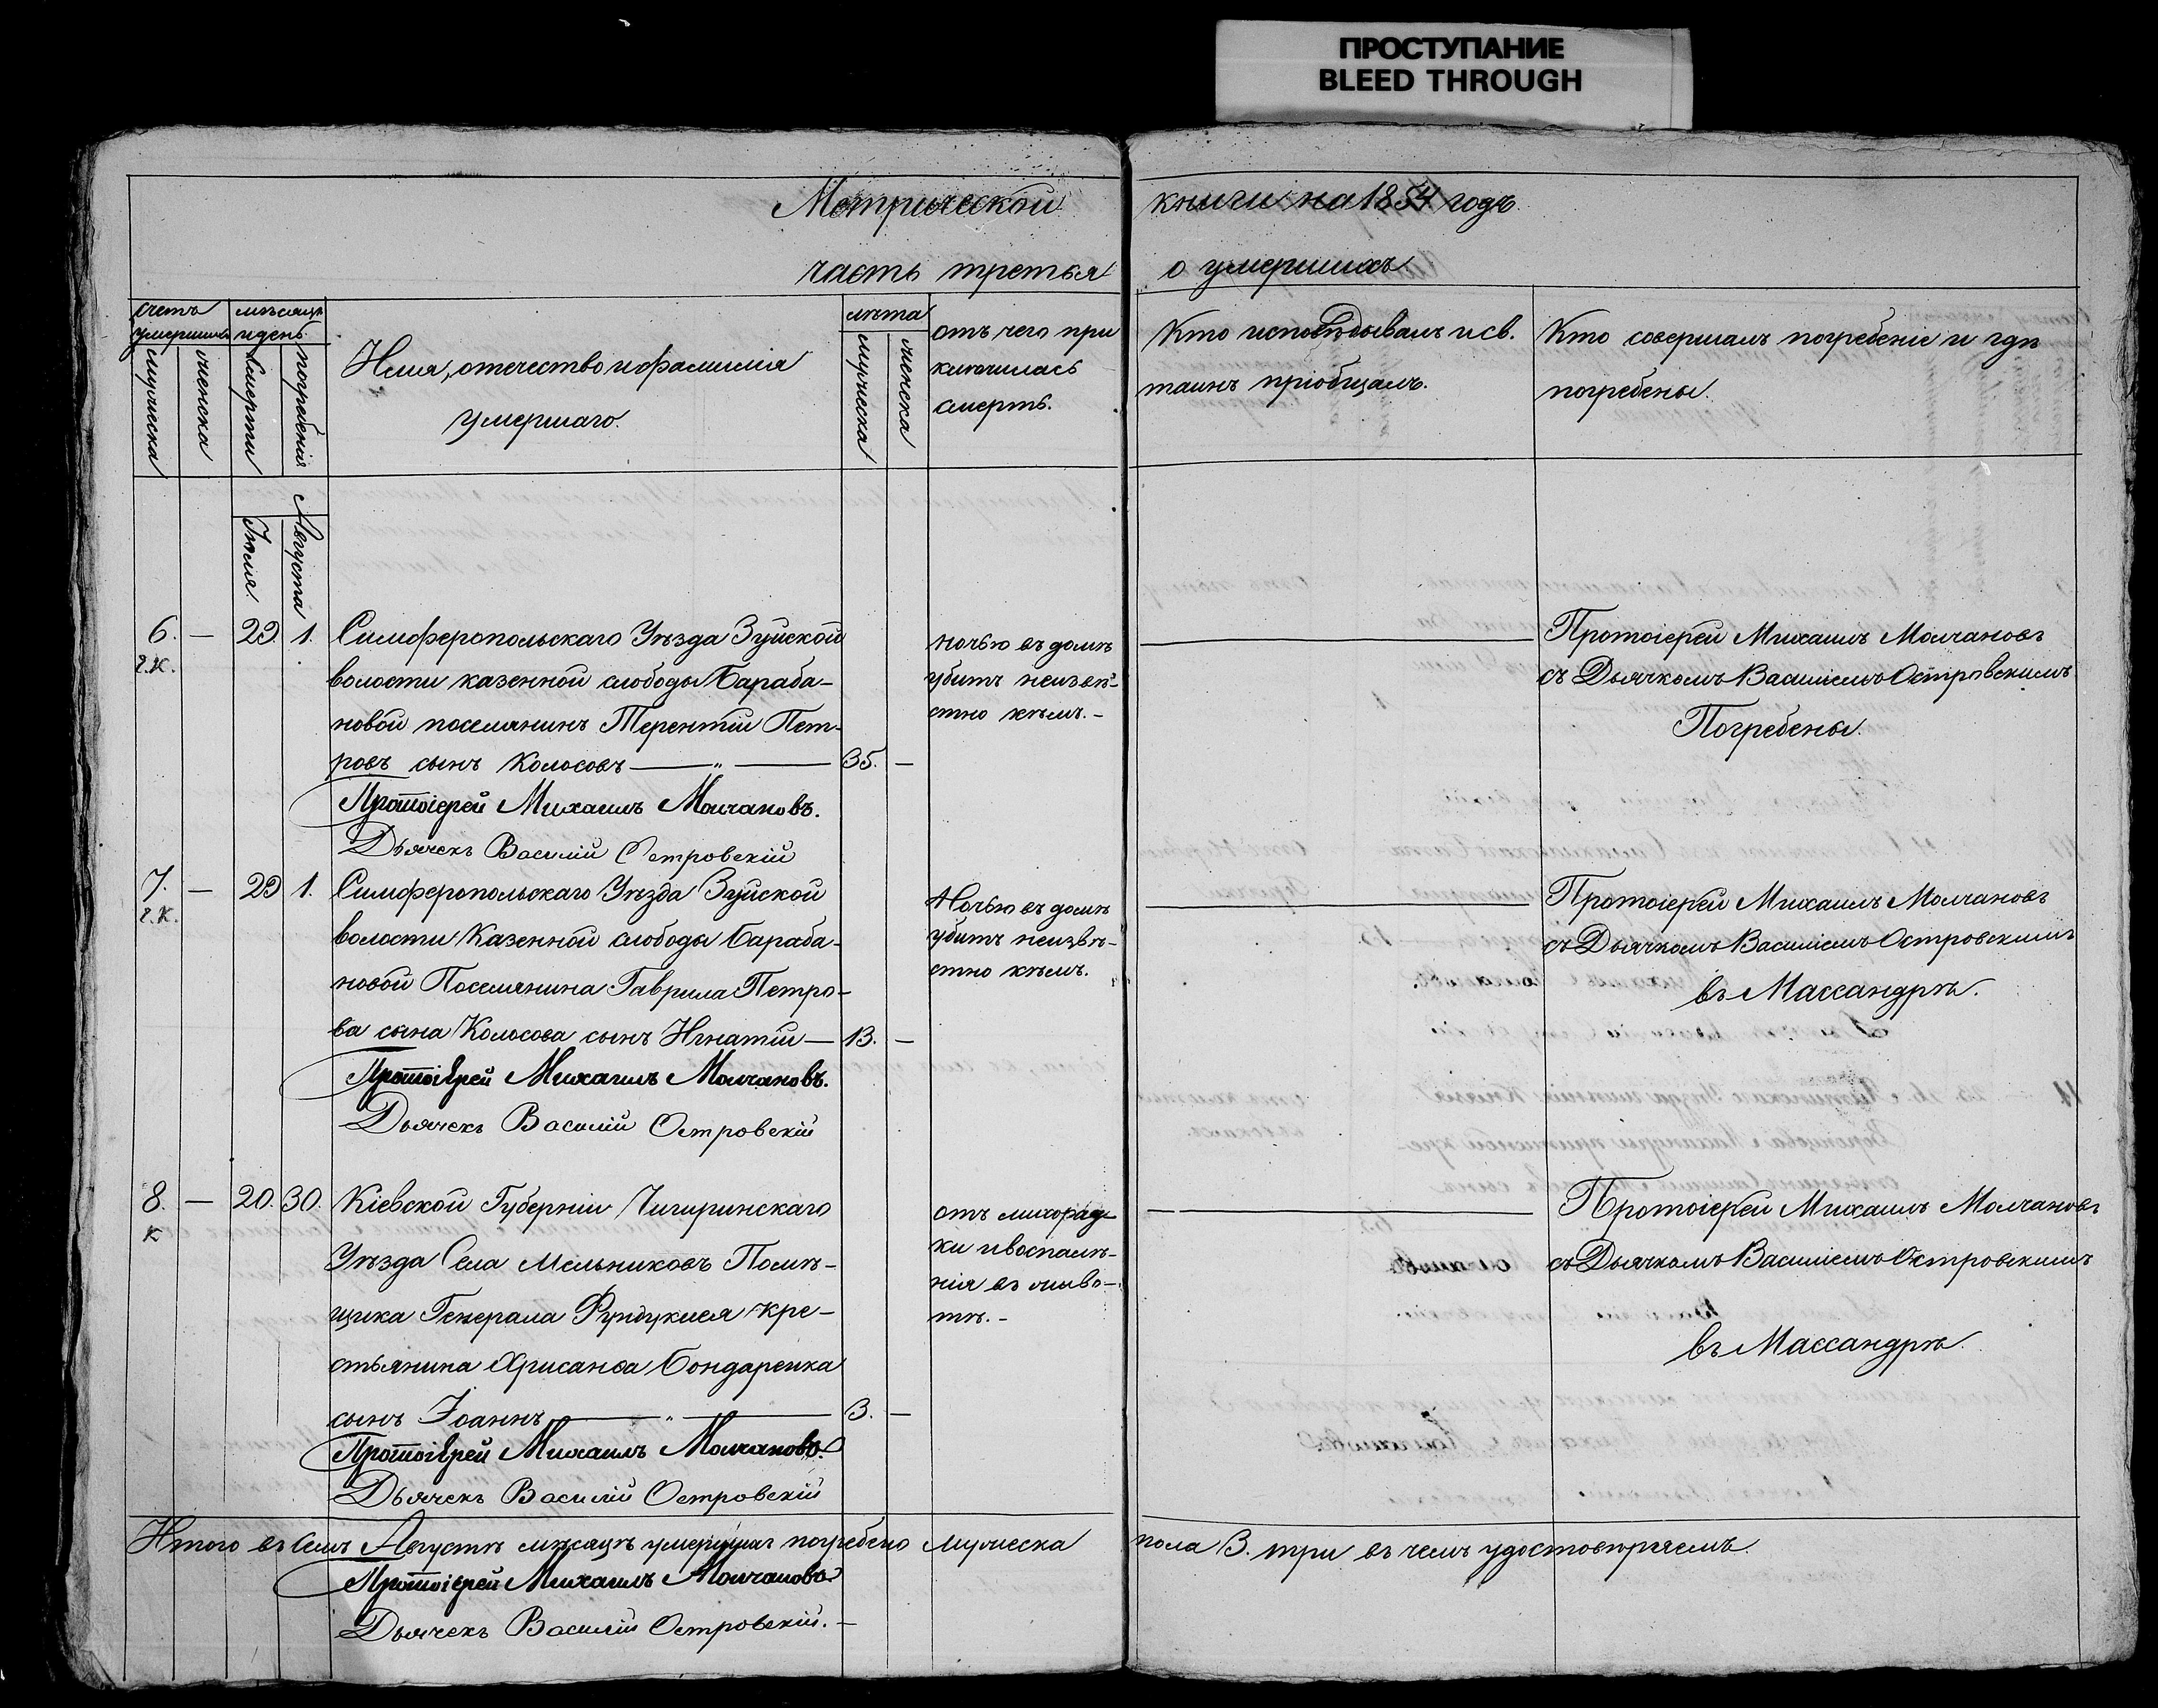 ПРОСТУПАНИЕ
BLEED THROUGH
Метрической книги на 1854 годъ.
часть третья о умершихъ.
счетъ умершихъ
мужеска
женска
мѣсяцъ и день
смерти
погребенія
Имя, отечество и фамилія
умершаго.
лѣта
мужеска
женска
отъ чего при
ключилась
смерть.
Кто исповѣдывалъ и св.
таинъ пріобщалъ.
Кто совершалъ погребеніе и гдѣ
погребены.
Іюля.
Августа
6. — 29. 1.
Симферопольскаго Уѣзда Зуйской
волости казенной слободы Караба-
новой поселянинъ Терентій Пет-
ровъ сынъ Колосовъ — „ — 35. —
Протоіерей Михаилъ Молчановъ.
Дьячекъ Василій Островскій
ночью въ домѣ
убитъ неизвѣ-
стно кѣмъ. -
Протоіерей Михаилъ Молчановъ
съ Дьячкомъ Василіемъ Островскимъ
Погребены.
7. — 29 1.
Симферопольскаго Уѣзда Зуйской
волости Казенной слободы Караба-
новой Поселянина Гаврила Петро-
ва сына Колосова сынъ Игнатій — 13. —
Протоіерей Михаилъ Молчановъ.
Дьячекъ Василій Островскій
Ночью въ домѣ
убитъ неизвѣ-
стно кѣмъ.
Протоіерей Михаилъ Молчановъ
съ Дьячкомъ Василіемъ Островскимъ
въ Массандрѣ.
8. — 20. 30.
к
Кіевской Губерніи Чигиринскаго
Уѣзда Села Мельниковъ Помѣ-
щика Генерала Фундуклея кре-
стьянина Хрисанѳа Бондаренка
сынъ Іоаннъ — „ — 3. —
Протоіерей Михаилъ Молчановъ.
Дьячекъ Василій Островскій
отъ лихорад-
ки и воспалѣ-
нія въ живо-
тѣ. -
Протоіерей Михаилъ Молчановъ
съ Дьячкомъ Василіемъ Островскимъ
въ Массандрѣ.
Итого въ семъ Августѣ мѣсяцѣ умершихъ погребено мужеска пола 3. три въ чемъ удостовѣряемъ.
Протоіерей Михаилъ Молчановъ
Дьячекъ Василій Островскій. -